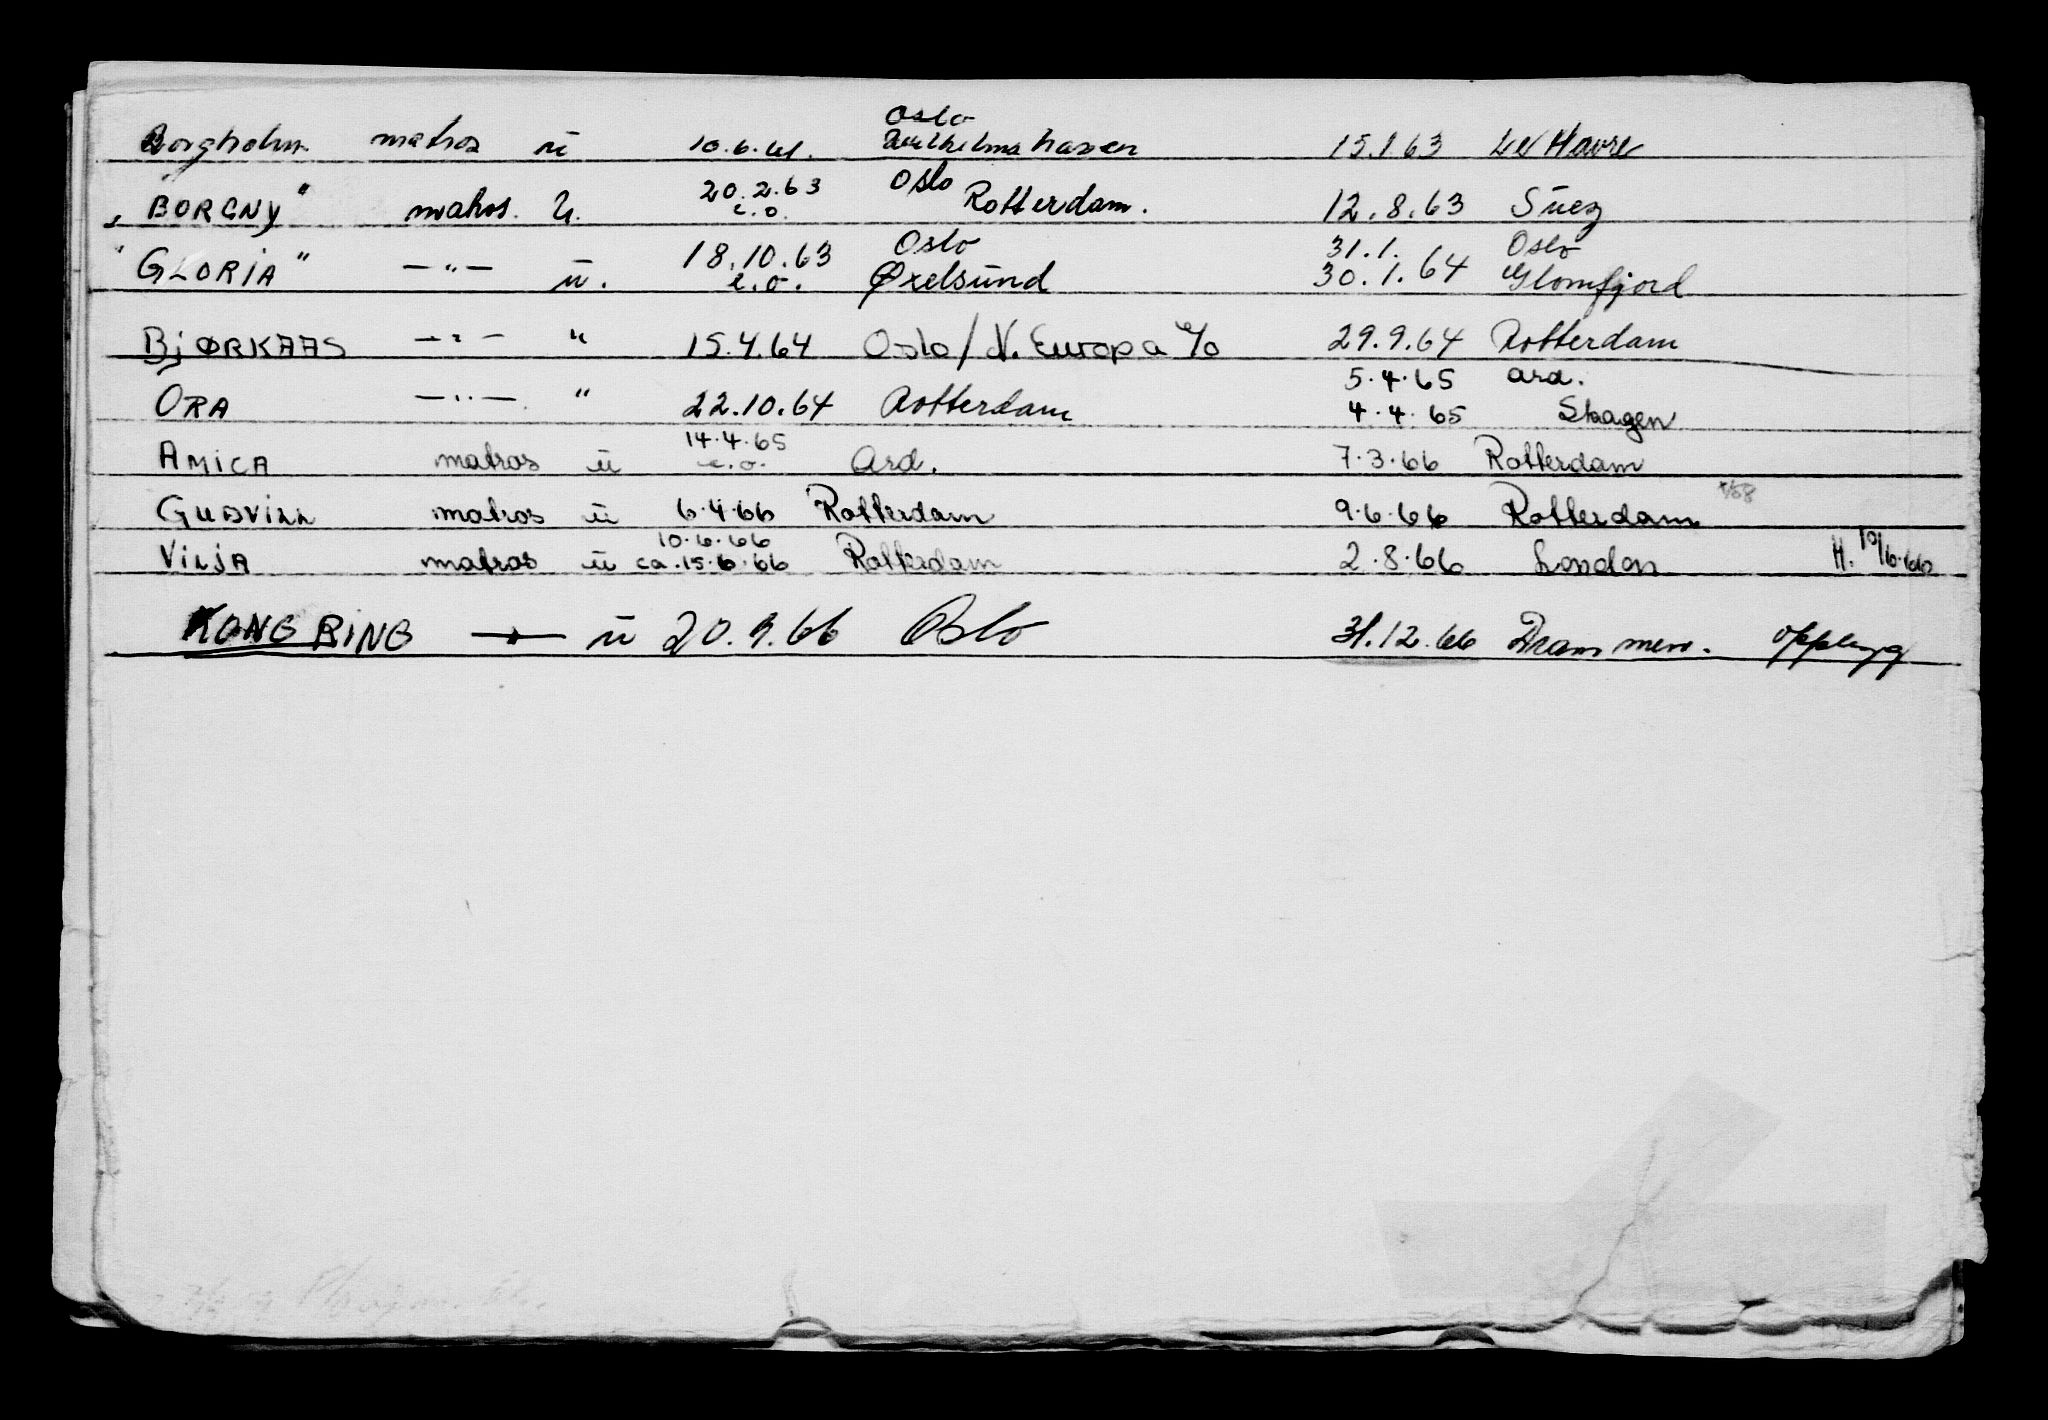 Oslo
Borgholm matros ū 10.6.61. Wilhelmshaven 15.1.63 Le Havre
20.2.63 Oslo
"BORGNY" matros. U. e.o. Rotterdam. 12.8.63 Suez
18.10.63 Oslo 31.1. Oslo
"GLORIA" —"— ū. e.o. Øxelsund 30.1.64 Glomfjord
BjØRKAAS —"— " 15.4.64 Oslo/N. Europa e/o 29.9.64 Rotterdam
5.4.65 Ard.
ORA —"— " 22.10.64 Rotterdam 4.4.65 Skagen
14.4.65
AMICA matros ū e.o. Ard. 7.3.66 Rotterdam
GUDVILL matros ū 6.4.66 Rotterdam 9.6.66 Rotterdam
10.6.66
VILJA matros ū ca.15.6.66 Rotterdam 2.8.66 London H. 10/6.66
KONG RING —"— ū 20.9.66 Oslo 31.12.66 Drammen. opplegg